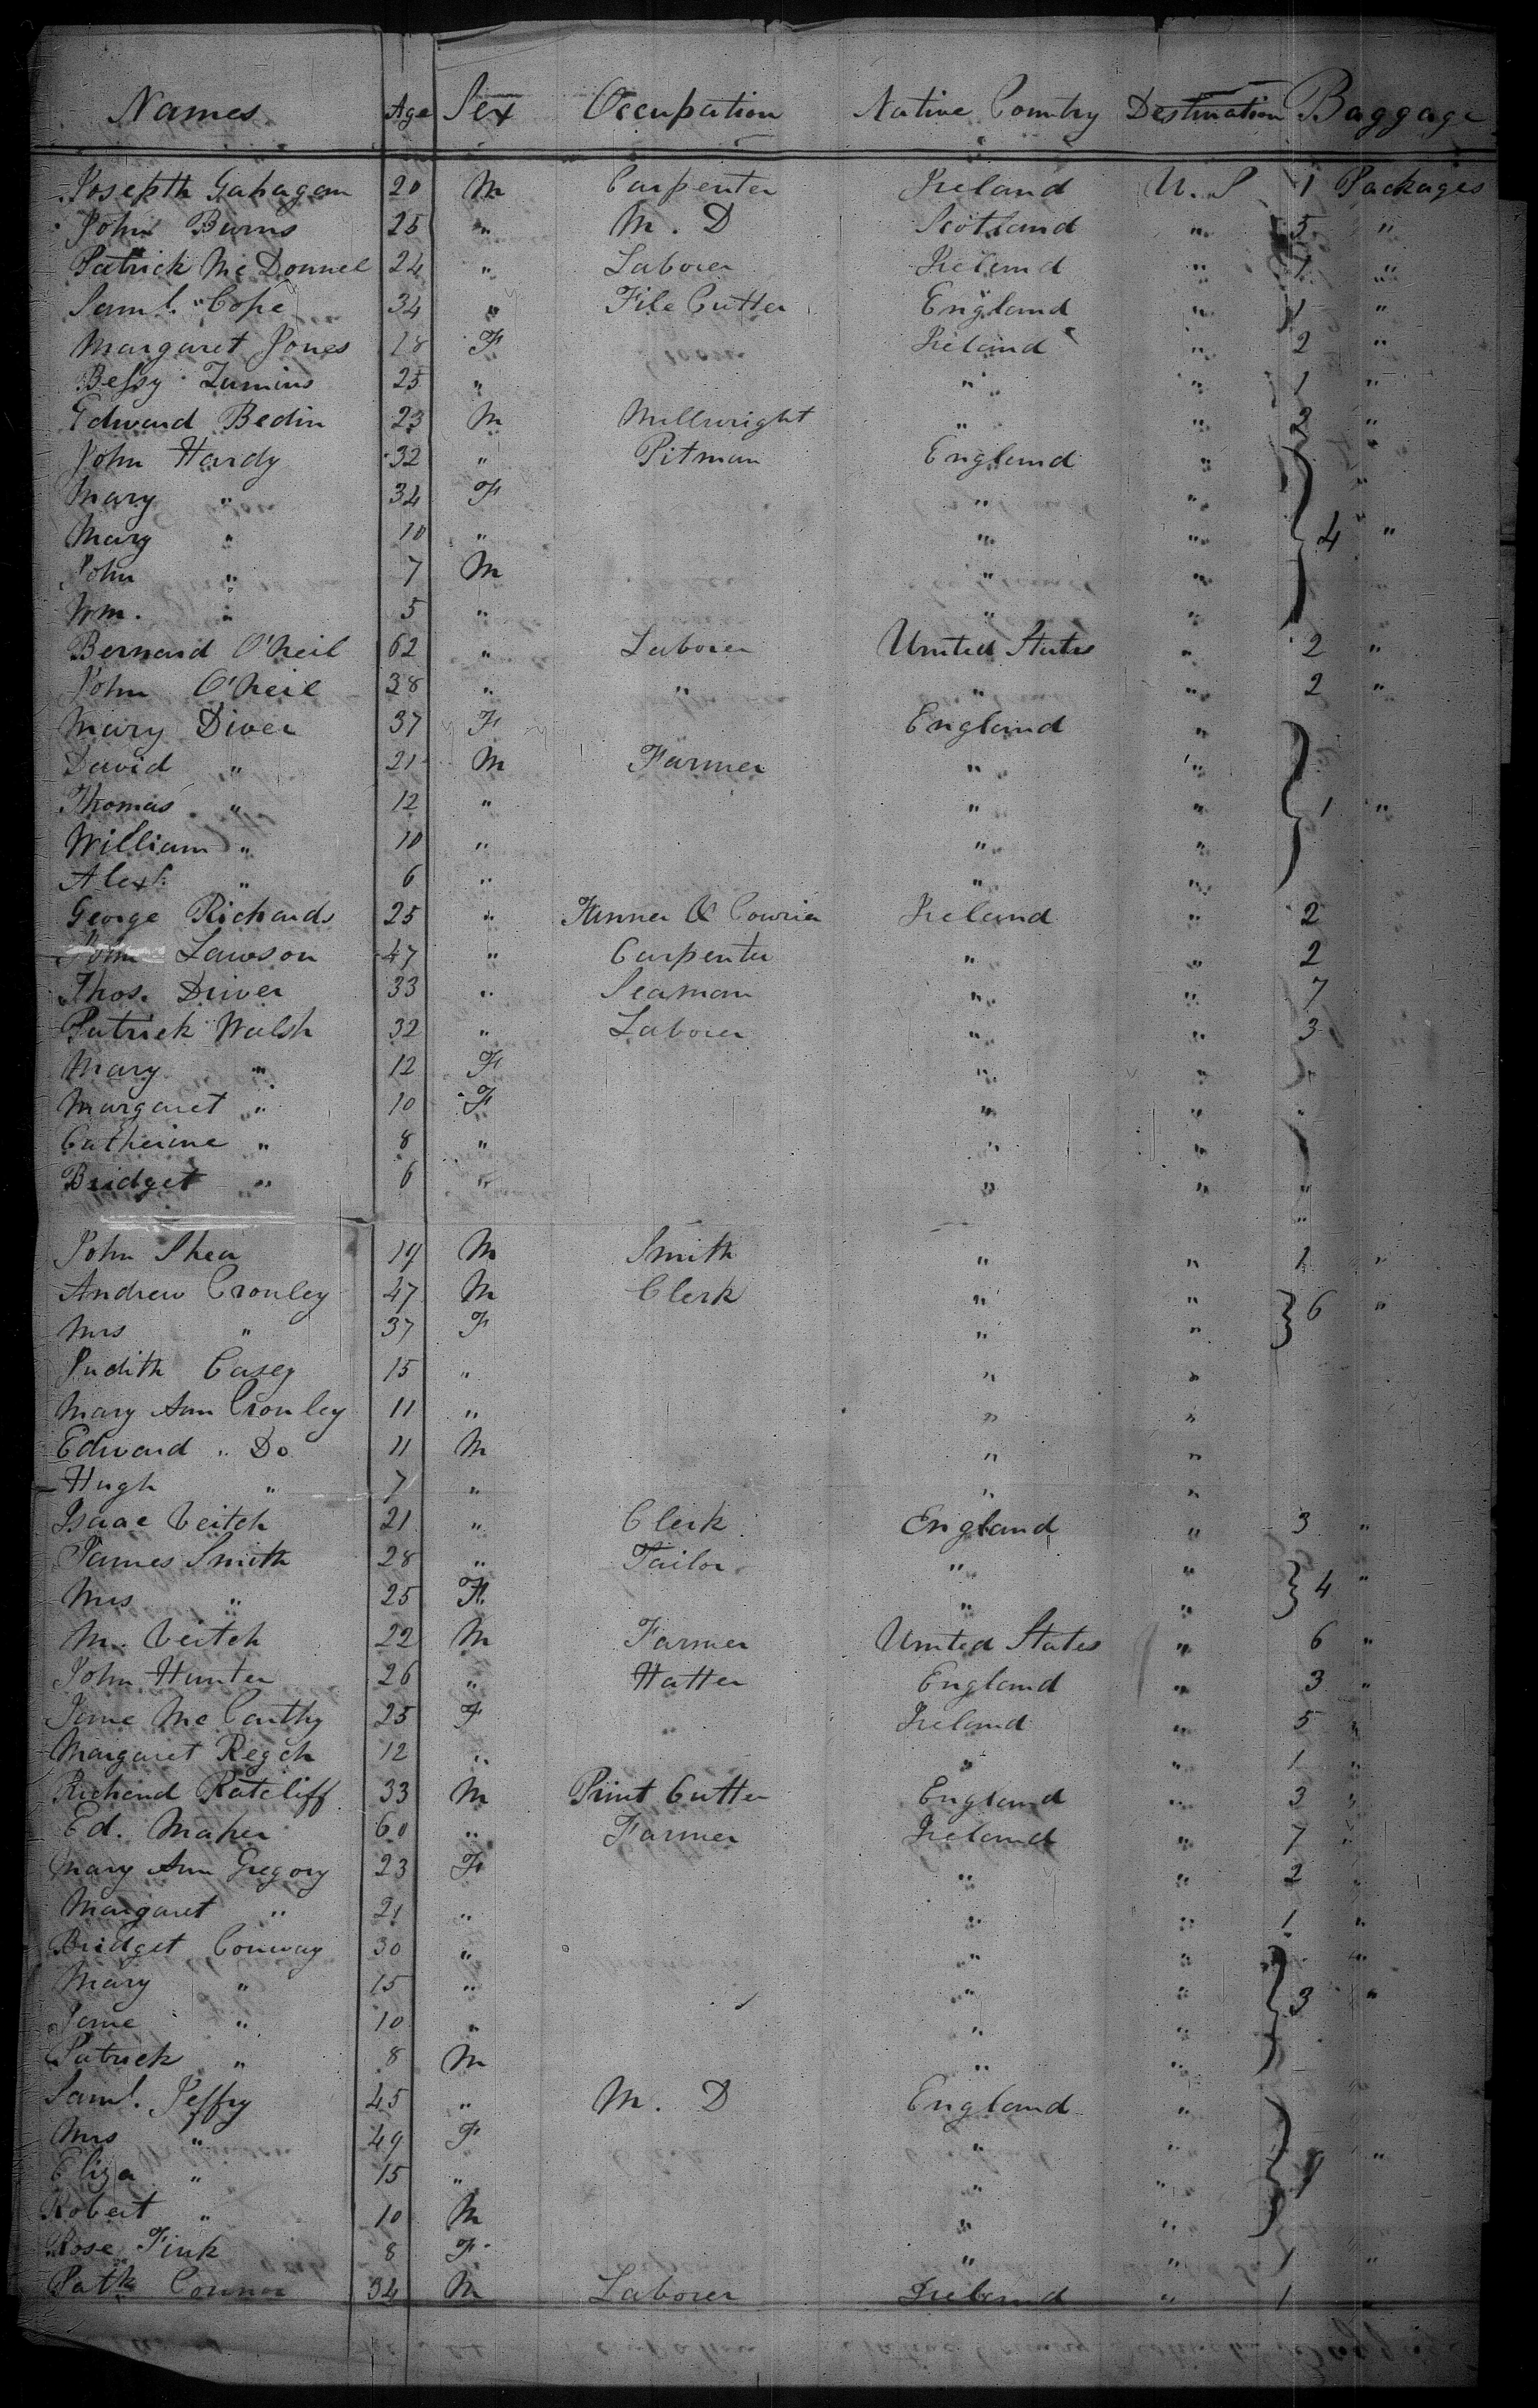 Names Age Sex Occupation Native Country Destination Baggage
Josepth Gahagan 20 M Carpenter Ireland U. S 1 Packages
John Burns 25 " M. D Scotland " 5 "
Patrick McDonnel 24 " Laborer Ireland " 1 "
Saml. Cope 34 " File Cutter England " 1 "
Margaret Jones 18 F Ireland " 2 "
Bessy 25 " " " 1 "
Edward Bedin 23 M Millwright " " 2 "
John Hardy 32 " Pitman England " "
Mary " 34 F " " "
Mary " 10 " " " 4 "
John " 7 M " "
Wm. " 5 " " "
Bernard O'Neil 62 " Laborer United States " 2 "
John O'Neil 38 " " " " 2 "
Mary Diver 37 F England "
David " 21 M Farmer " "
Thomas " 12 " " " 1 "
William " 10 " " "
Alexr. " 6 " " "
George Richards 25 " Tanner & Courier Ireland " 2
John Lawson 47 " Carpenter " " 2
Thos. Driver 33 " Seaman " " 7
Patrick Walsh 32 " Laborer " " 3
Mary " 12 F " "
Margaret " 10 F " " "
Catherine " 8 " " "
Bridget " 6 " " " "
"
John Shea 19 M Smith " " 1 "
Andrew Cronley 47 M Clerk " " 6 "
Mrs " 37 F " "
Judith Casey 15 " " "
Mary Ann Cronley 11 " " "
Edward " Do 11 M " "
Hugh " 7 " " "
Isaac Veitch 21 " Clerk England " 3 "
James Smith 28 " Tailor " " "
Mrs " 25 F " " 4
M. Veitch 22 M Farmer United States " 6 "
John Hunter 26 " Hatter England " 3 "
Jane McCarthy 25 F " Ireland " 5 "
Margaret 12 " " " 1 "
Richard Ratcliff 33 M Print Cutter England " 3 "
Ed. Maher 60 " Farmer Ireland " 7 "
Mary Ann Gregory 23 F " " 2 "
Margaret " 21 " " " 1 "
Bridget Conway 30 " " " "
Mary " 15 " " " 3 "
Jane " 10 " " "
Patrick " 8 M " "
Saml. Jeffry 45 " M. D England "
Mrs " 49 F " " "
Eliza " 15 " " "
Robert " 10 M " "
Rose Fink 8 F " " 1 "
Patk Connor 34 M Laborer Ireland " 1 "